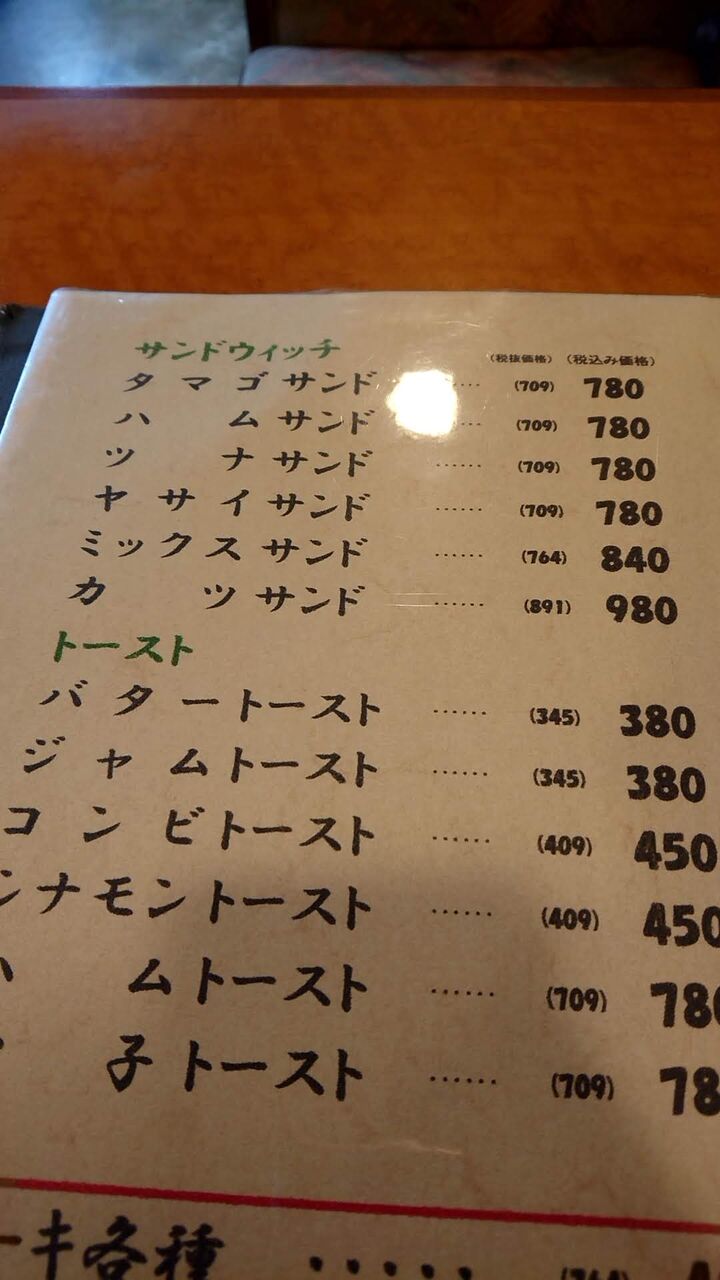 サンドウィッチ (税抜価格) (税込み価格)
タマゴサンド ..... (709) 780
ハムサンド ..... (709) 780
ツナサンド ...... (709) 780
ヤサイサンド ...... (709) 780
ミックスサンド ...... (764) 840
カツサンド ...... (891) 980
トースト
バタートースト ...... (345) 380
ジャムトースト ...... (345) 380
コンビトースト ...... (409) 450
シナモントースト ...... (409) 450
ハムトースト ...... (709) 780
子トースト ...... (709) 78
ーキ各種 .....